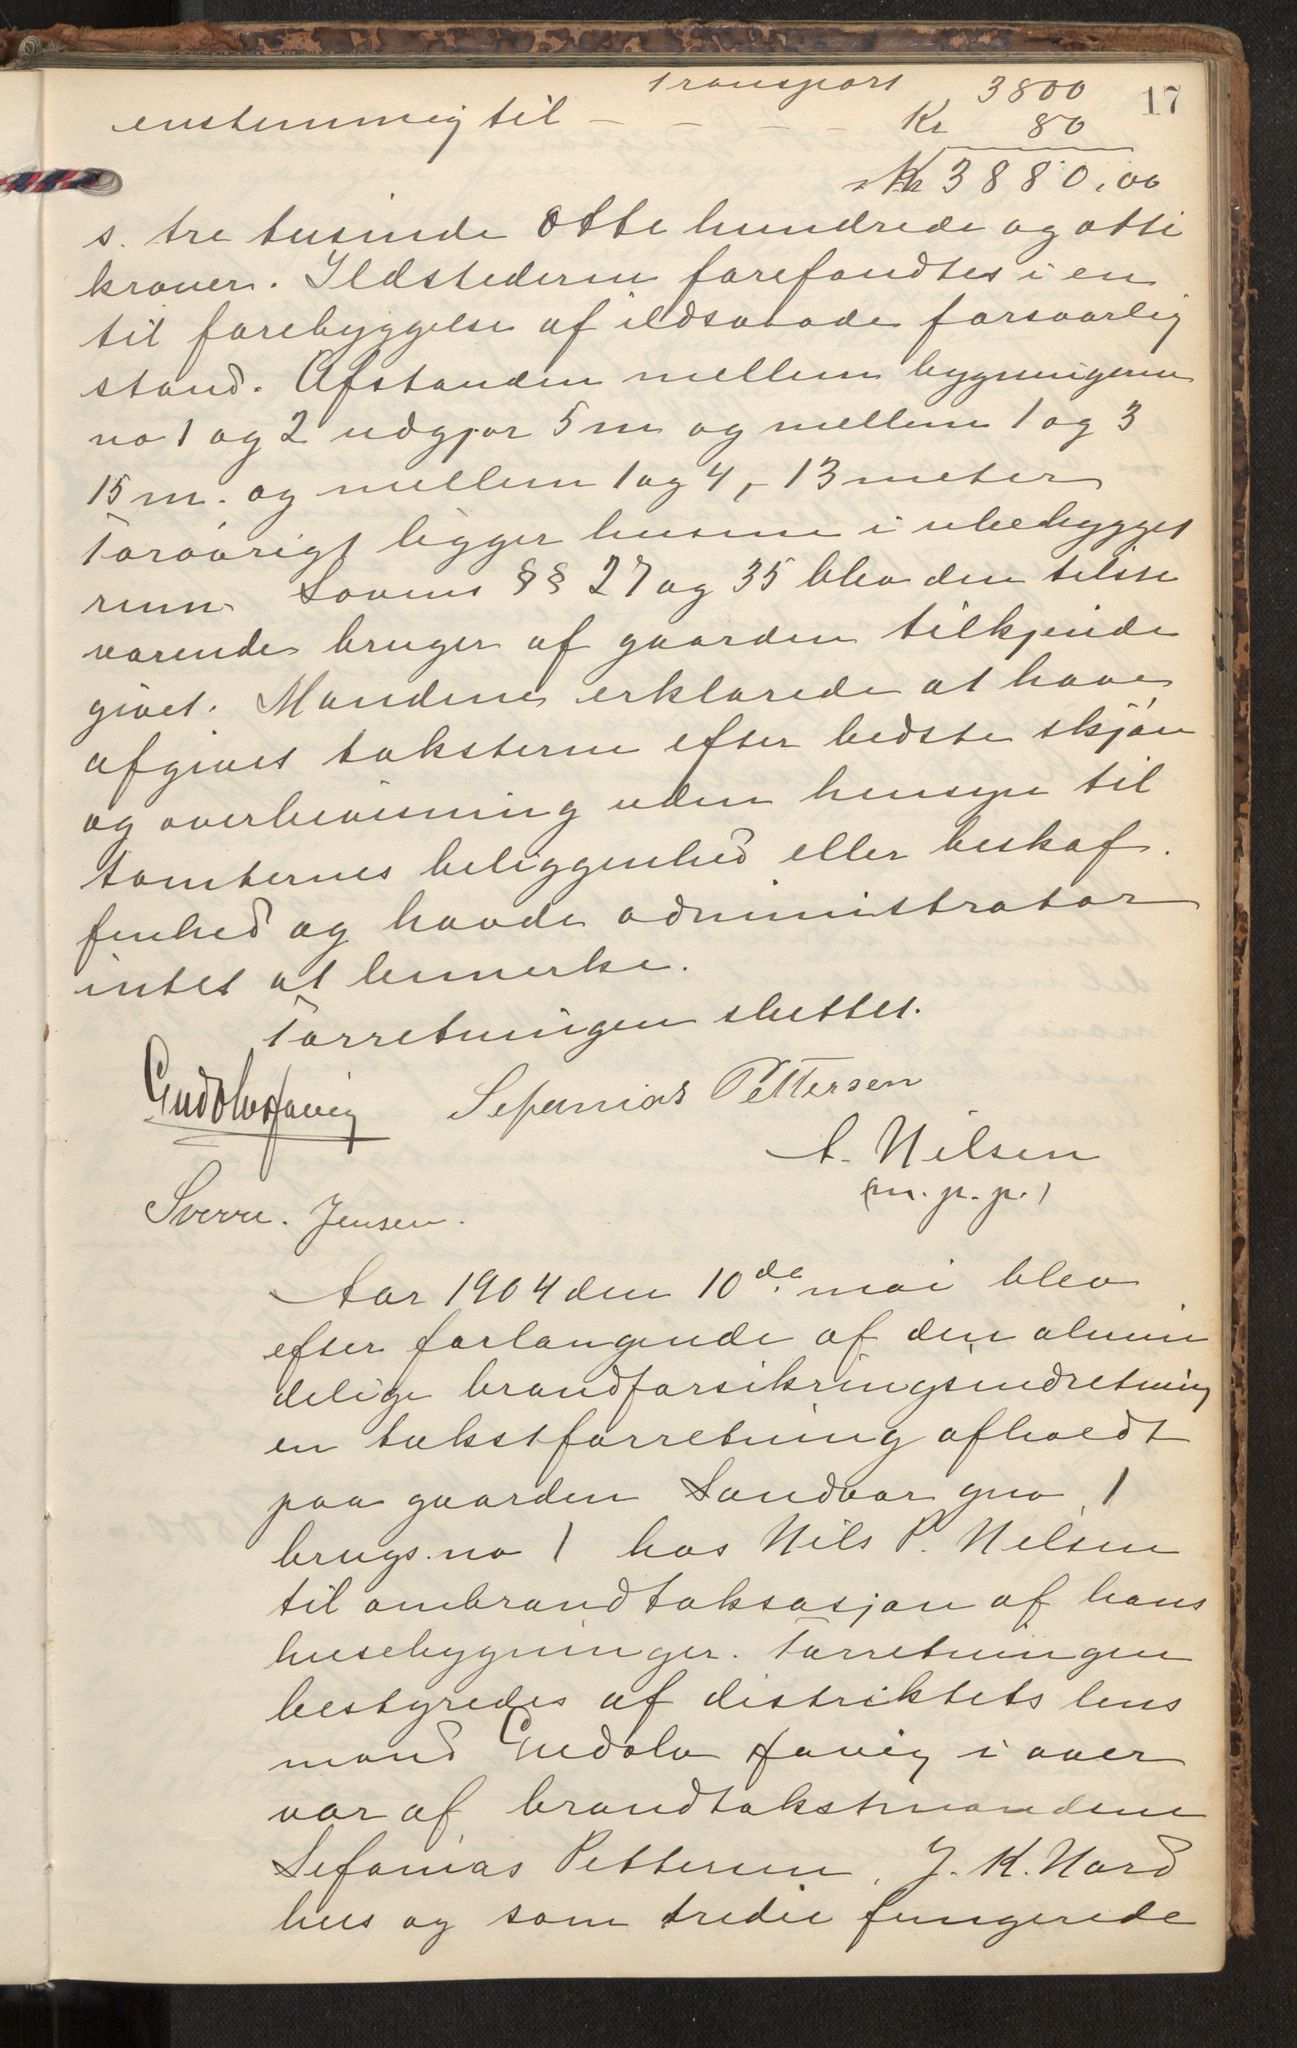 Transport 3800
17
enstemmig til - - - - Kr 80
Kr 3880,00
s. tre tusinde otte hundrede og otti
kroner. Ildstederne forefandtes i en
til forebyggelse af ildsvaade forsvarlig
stand. Afstanden mellem bygningerne
no 1 og 2 udgjør 5 m og mellem 1 og 3
15 m. og mellem 1 og 4, 13 meter
Forøvrigt ligger husene i ubebygget
rum. Lovens §§ 27 og 35 blev den tilste
værende bruger af gaarden tilkjende
givet. Mændene erklærede at have
afgivet taksterne efter bedste skjøn
og overbevisning uden hensyn til
tomternes beliggenhed eller beskaf.
fenhed og havde administrator
intet at bemerke.
Forretningen sluttet.
Gudolv Havig Sefanias Pettersen
A. Nilsen
(m. p. p.)
Sverre. Jensen.
Aar 1904 den 10de mai blev
efter forlangende af den almin
delige brandforsikringsindretning
en takstforretning afholdt
paa gaarden Sandvær gno. 1
brugs. no 1 hos Nils P. Nilsen
til ombrandtaksasjon af hans
husebygninger. Forretningen
bestyredes af distriktets lens
mand Gudolv Havig i over
vær af brandtakstmændene
Sefanias Pettersen, J. K. Nord
hus og som tredie fungerede